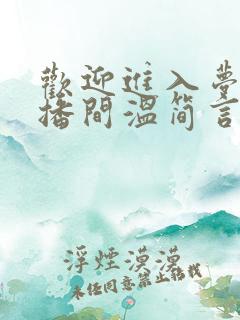 歡迎進入夢
播間溫简言
浮煙漠漠
未经同意禁止转载